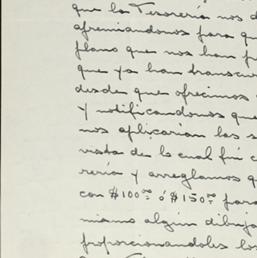 que la Tesorería nos d
apremiandonos para qu
plano que nos han f
que ya han transcur
desde que ofrecimos
y notificandonos que
nos aplicarían las s
vista de lo cual fuí c
rería y arreglamos q
con $100.00 ó $150.00 para
mismo algún dibuja
proporcionandoles los